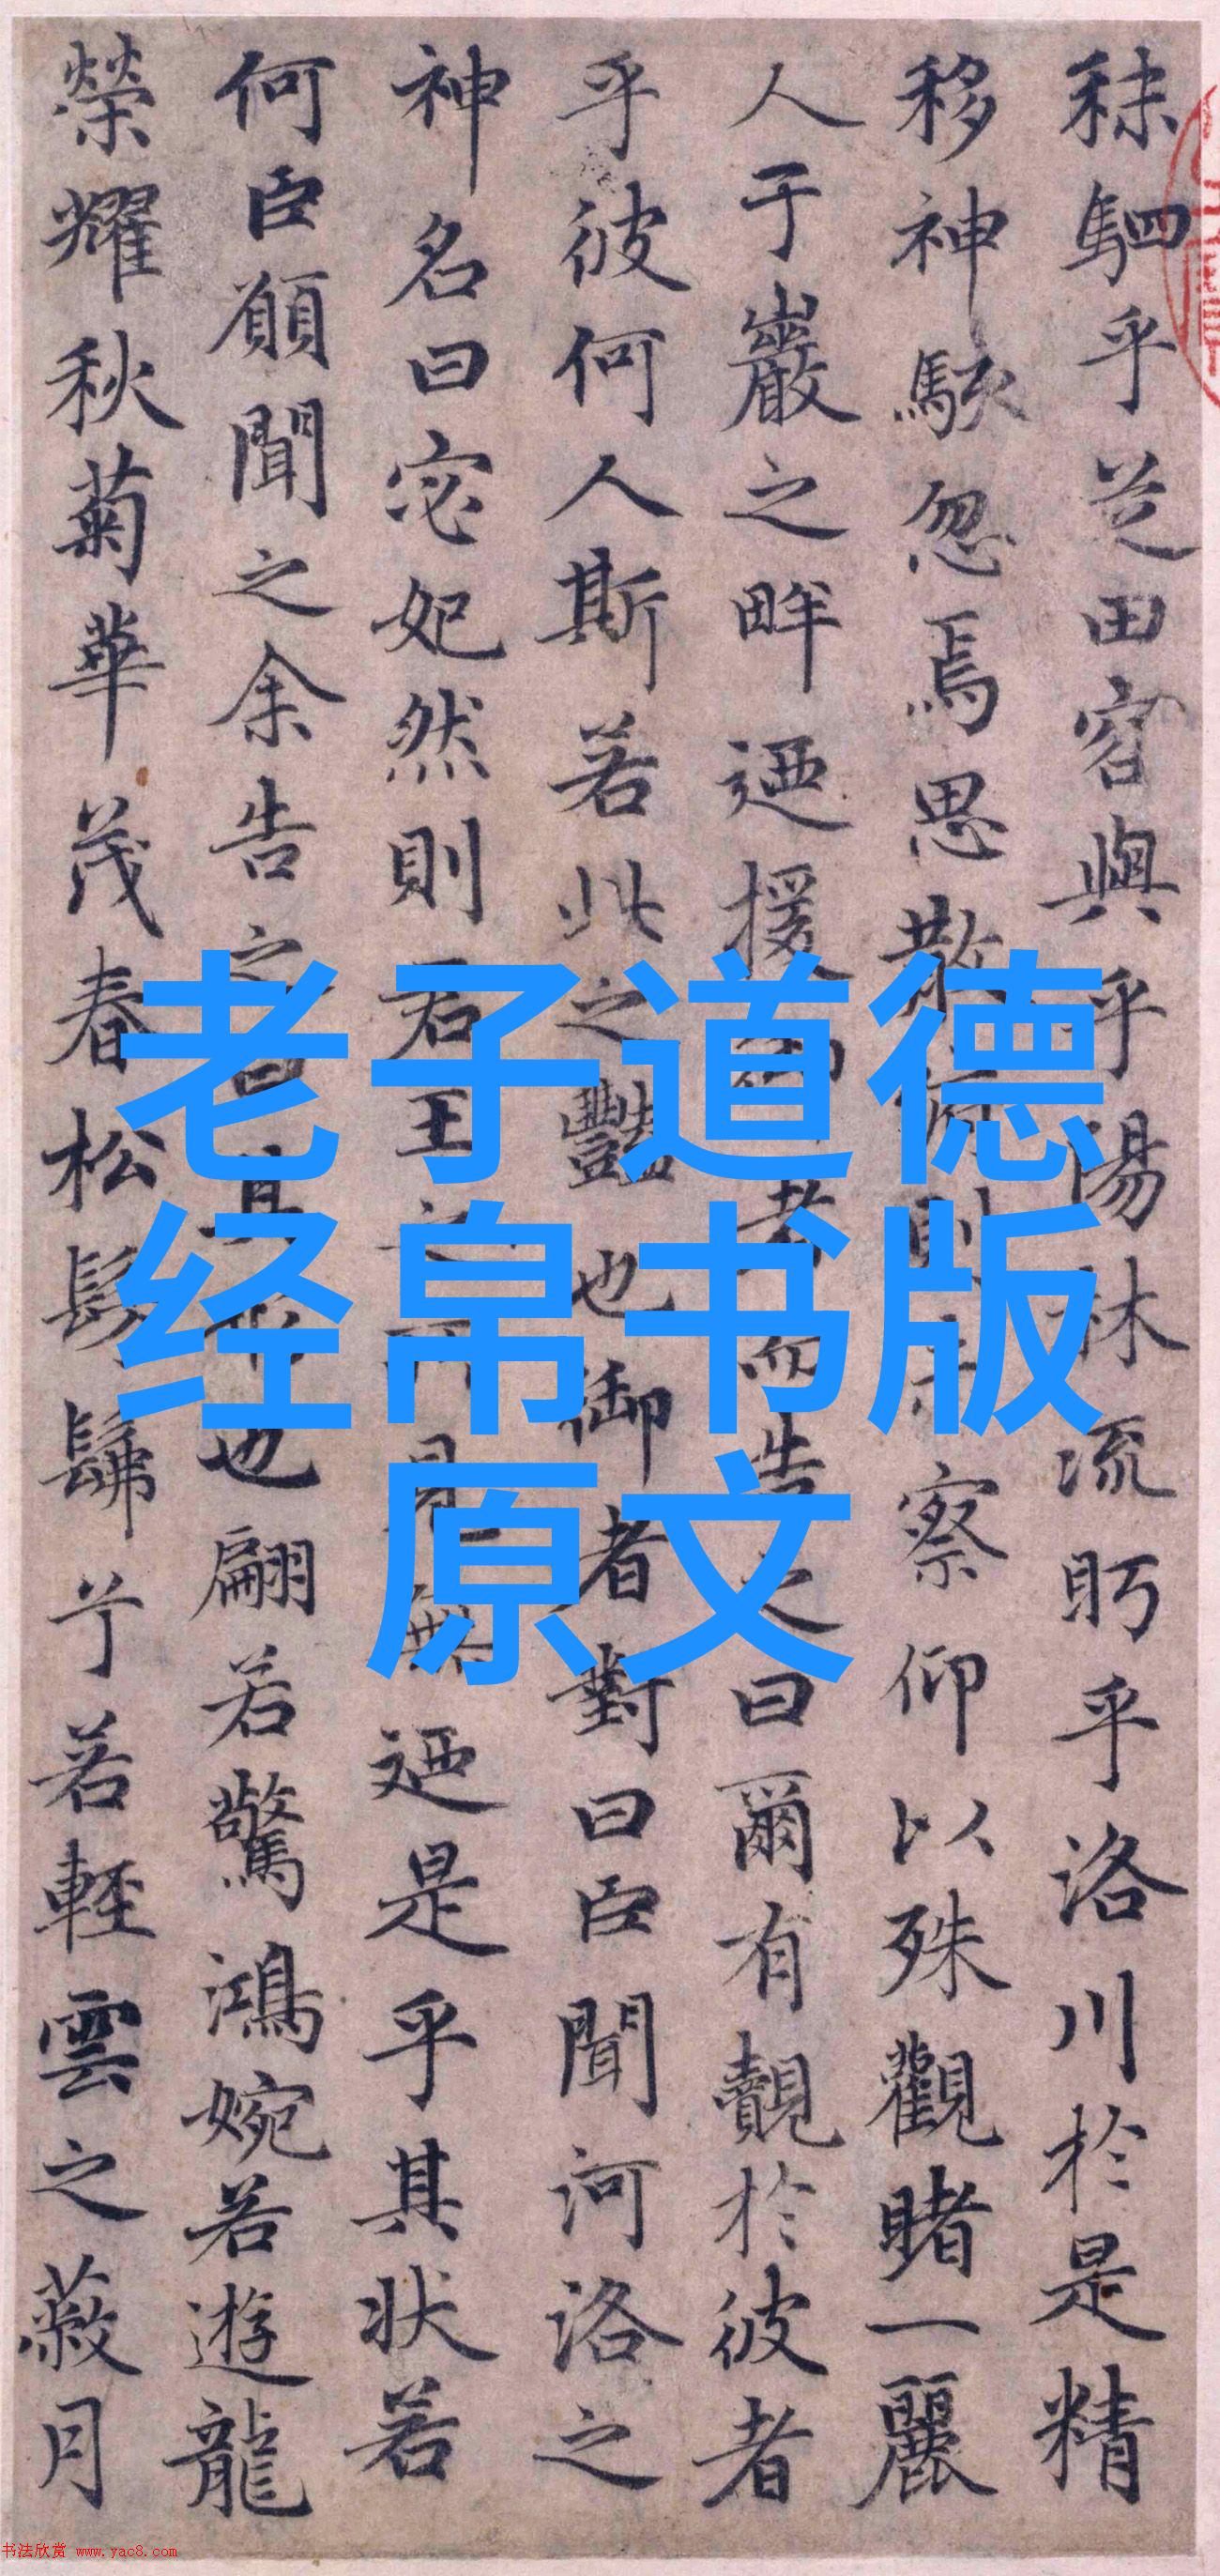 秣駟乎芝田容與乎陽林流眄乎洛川於是精
移神駭忽焉思散俯則未察仰以殊觀睹一麗
人于巖之畔迺援御者而告之曰爾有覿於彼者
乎彼何人斯若此之豔也御者對曰臣聞河洛之
神名曰宓妃然則君王之所見無迺是乎其狀若
何臣願聞之余告之曰其形也翩若驚鴻婉若遊龍
榮耀秋菊華茂春松髣髴兮若輕雲之蔽月
老子道德
经帛书版
原文
书法欣赏 www.yac8.com